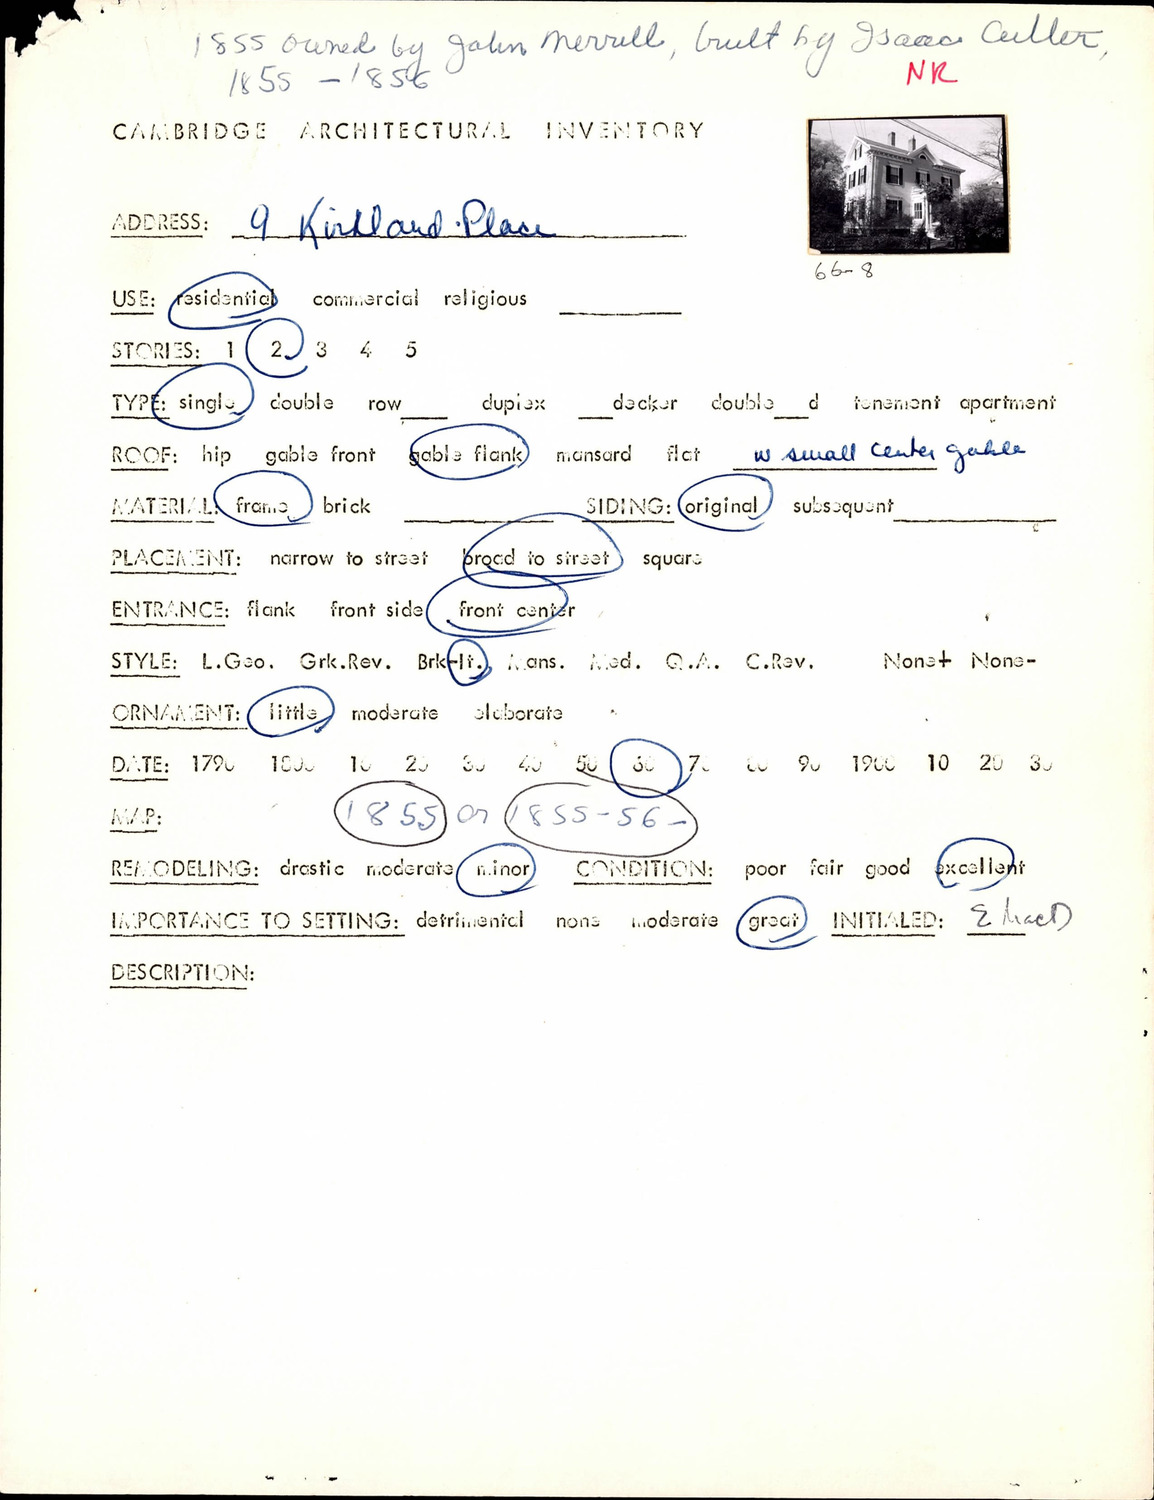 1855 owned by John Merrill, built by Isaac Cutler,
1855 - 1856
NR
CAMBRIDGE ARCHITECTURAL INVENTORY
ADDRESS: 9 Kirkland Place
66-8
USE: residential commercial religious
STORIES: 1 2 3 4 5
TYPE: single double row____ duplex ___decker double___d tenement apartment
ROOF: hip gable front gable flank mansard flat w small center gable
MATERIAL: frame brick ____ SIDING: original subsequent____
PLACEMENT: narrow to street broad to street square
ENTRANCE: flank front side front center
STYLE: L.Geo. Grk.Rev. Brk-It. Mans. Med. Q.A. C.Rev. None+ None-
ORNAMENT: little moderate elaborate
DATE: 1790 1800 10 20 30 40 50 60 70 80 90 1900 10 20 30
MAP: 1855 or 1855-56-
REMODELING: drastic moderate minor CONDITION: poor fair good excellent
IMPORTANCE TO SETTING: detrimental none moderate great INITIALED: E MacD
DESCRIPTION: